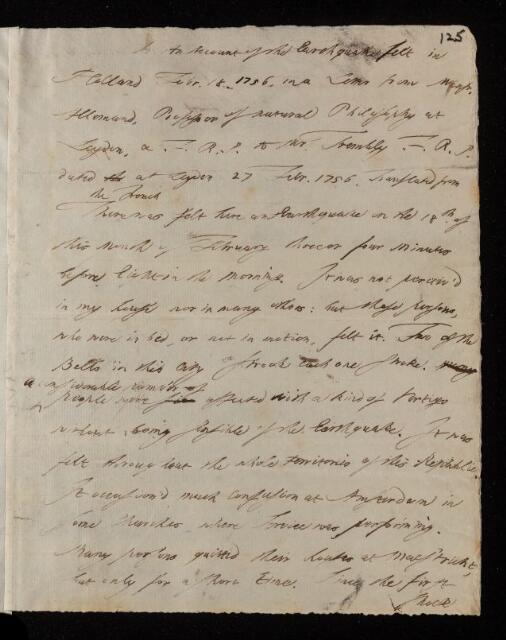 125
An Account of the Earthquake felt in
Holland Febr. 18. 1756. in a Letter from
Allemand, Professor of natural Philosophy at
Leyden, & F. R. S. to Mr. Trembley F. R. S.
dated at Leyden 27 Febr. 1756. Translated from
the French
There was felt here an Earthquake on the 18th. of
this Month of February three or four minutes
before Eight in the Morning. It was not perceiv'd
in my house nor in many others: but those persons,
who were in bed, or not in motion, felt it. Two of the
Bells in this City struck each one stroke.
a considerable number of
People were affected with a kind of Vertigo
without being sensible of the Earthquake. It was
felt throughout the whole territories of this Republic.
It occasion'd much confusion at Amsterdam in
some Churches, where Service was performing.
Many persons quitted their houses at Maestricht,
but only for a short time. Since the first
Shock